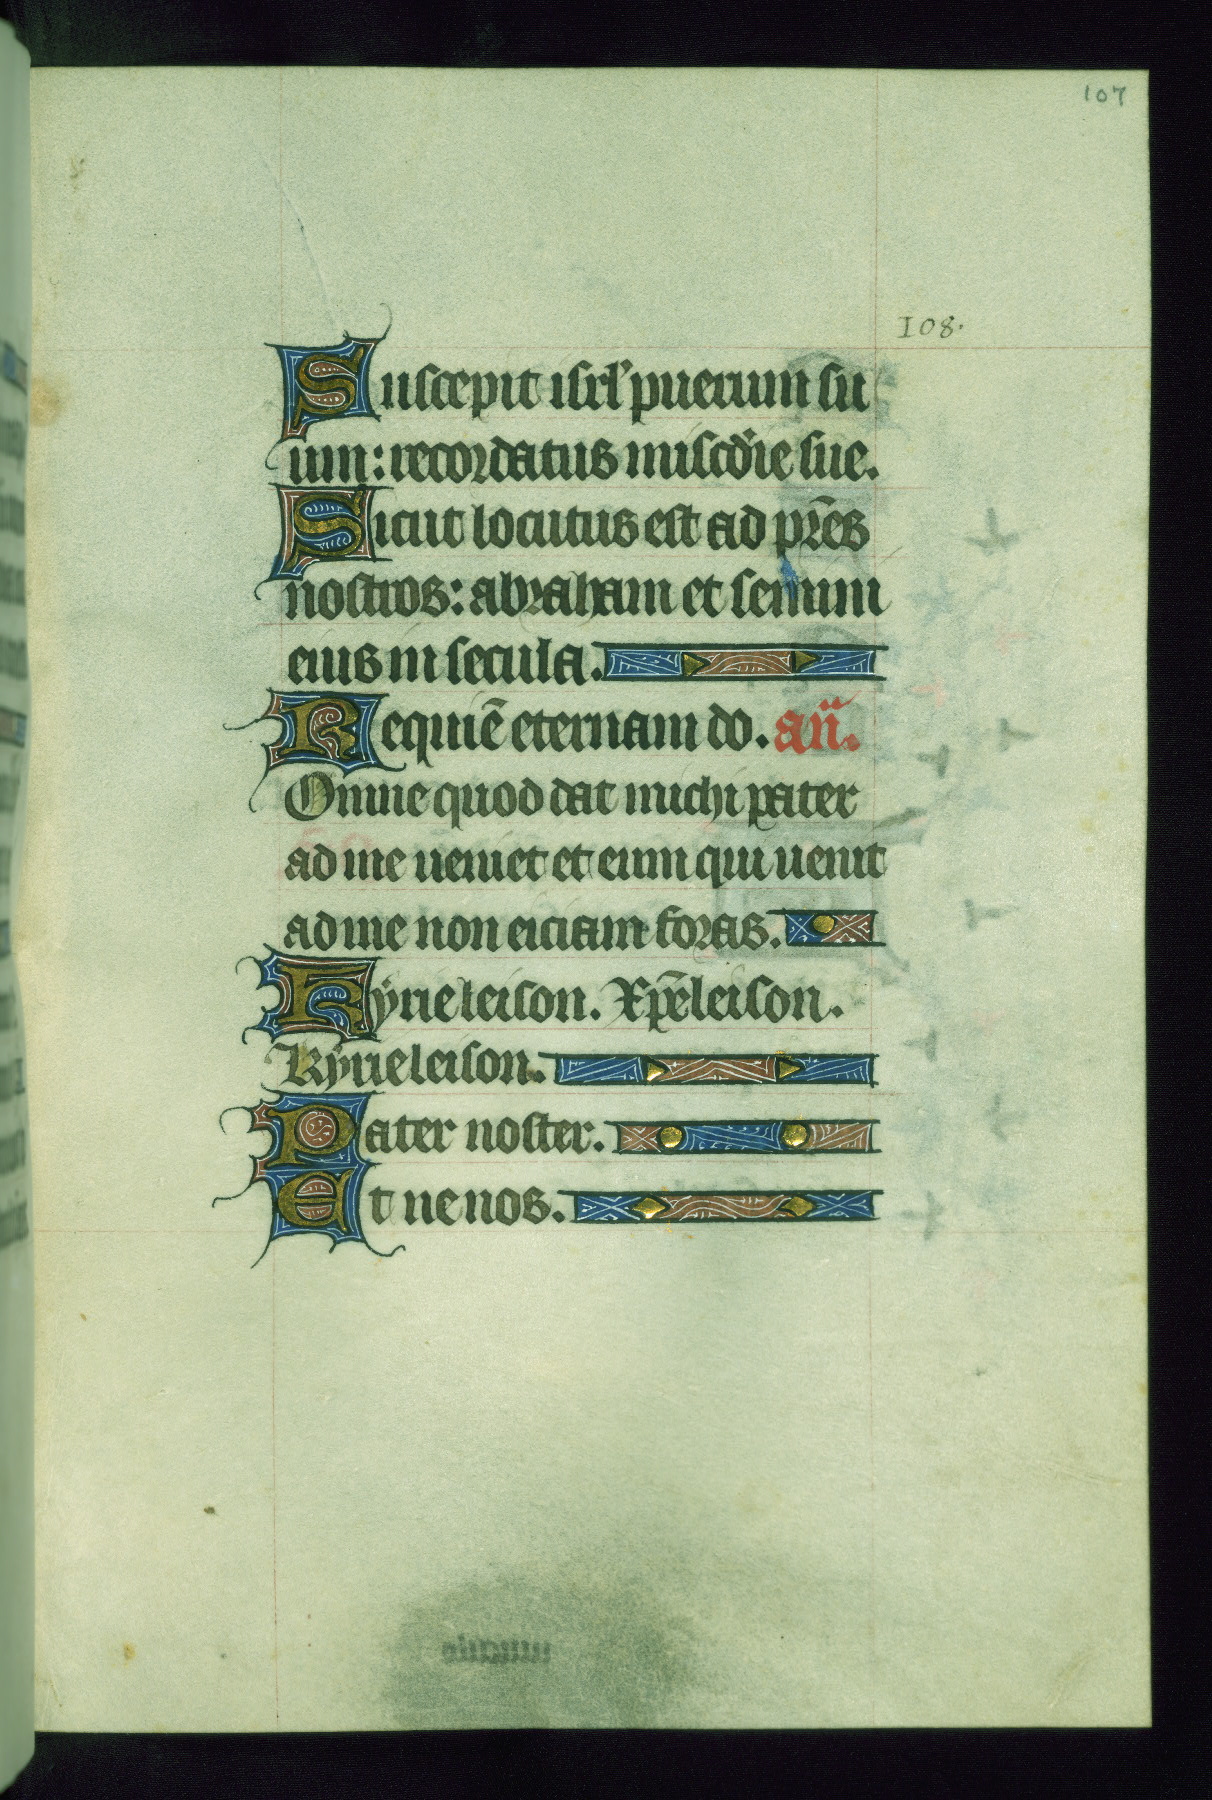 107
108.
Suscepit isrl' puerum su
um: recordatus miscd'ie sue.
Sicut locutus est ad pr̄es
nostros: abraham et semini
eius in secula.
Requiē eternam do. an̄.
Omne quod dat michi pater
ad me ueniet et eum qui uenit
ad me non eiciam foras.
Kyrieleison. Xp̄eleison.
Kyrieleison.
Pater noster.
Et ne nos.